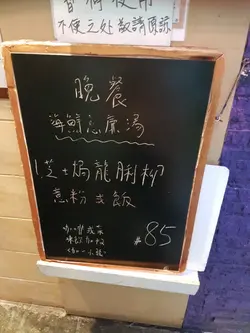 暫停使用
不便之处敬請原諒
晚餐
海鮮忌廉湯
芝士焗龍脷柳
意粉或飯
$85